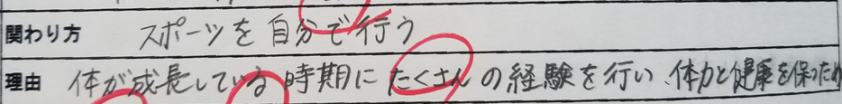 関わり方 スポーツを自分で行う
理由 体が成長している時期にたくさんの経験を行い、体力と健康を保つため